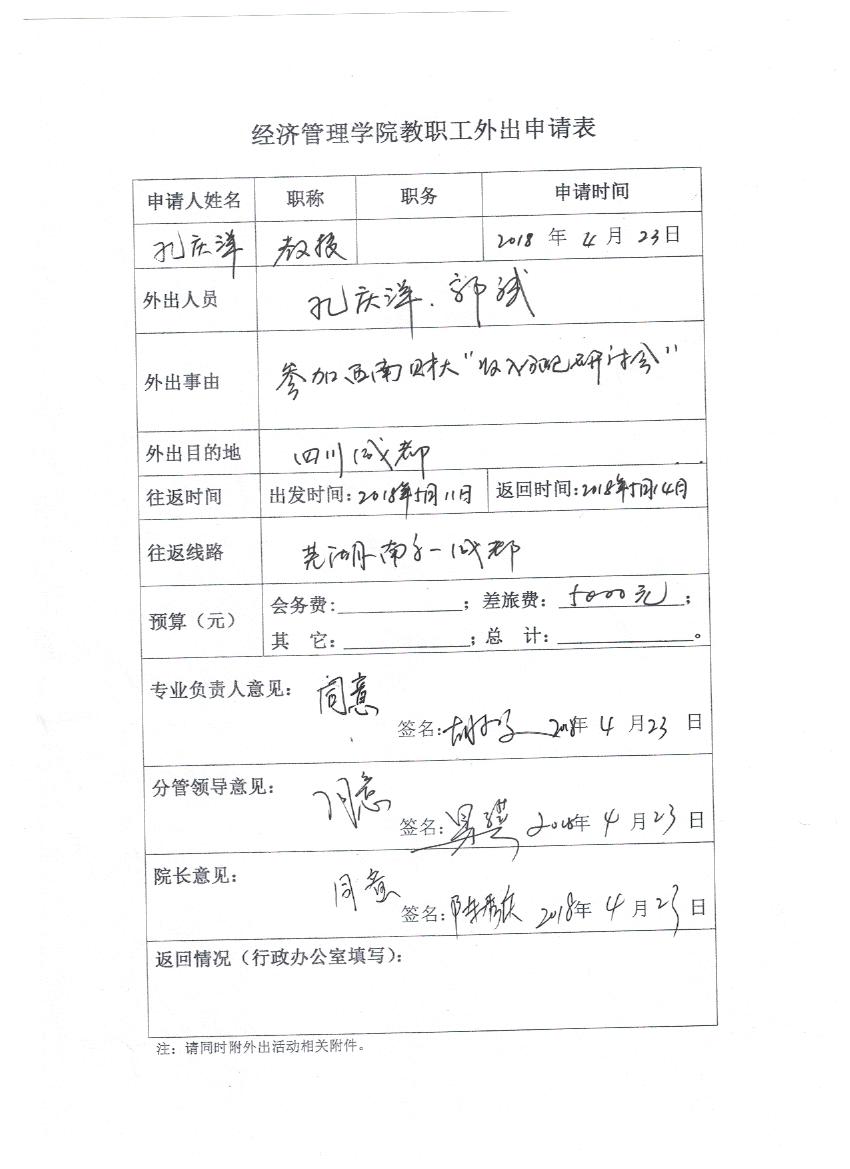 经济管理学院教职工外出申请表
申请人姓名 职称 职务 申请时间
孔庆洋 教授 2018 年 4 月 23 日
外出人员 孔庆洋、郭斌
外出事由 参加西南财大"收入分配研讨会"
外出目的地 四川成都
往返时间 出发时间:2018年5月11日 返回时间:2018年5月14日
往返线路 芜湖-南京-成都
预算（元） 会务费:＿＿＿; 差旅费: 5000元;
其 它:＿＿＿; 总 计:＿＿＿。
专业负责人意见: 同意
签名: 2018年 4 月 23 日
分管领导意见: 同意
签名: 2018年 4 月 23 日
院长意见: 同意
签名: 2018年 4 月 23 日
返回情况（行政办公室填写）:
注: 请同时附外出活动相关附件。